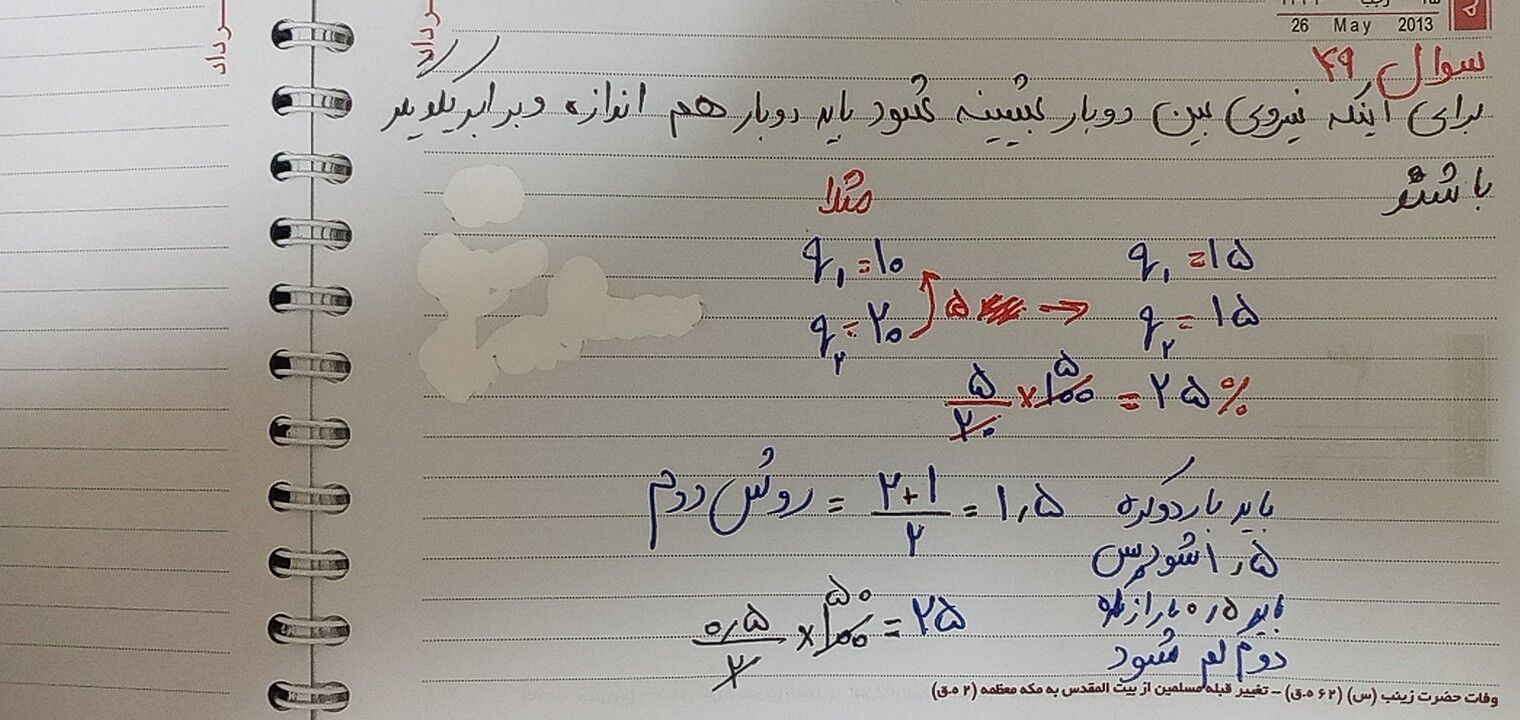 26 May 2013
سوال ۴۹
برای اینکه نیروی بین دوبار بیشینه شود باید دوبار هم اندازه و برابر یکدیگر
باشند
مثلا
q₁ = ۱۰
q₂ = ۲۰
۵ →
q₁ = ۱۵
q₂ = ۱۵
۵/۲۰ × ۱۰۰ ۵ = ۲۵ %
روش دوم = (۲+۱)/۲ = ۱٫۵
باید بار دو کره
۱٫۵ شود پس
باید ۰٫۵ بار از کره
دوم کم شود
۰٫۵/۲ × ۱۰۰ ۵۰ = ۲۵
وفات حضرت زینب (س) (۶۲ ه.ق) – تغییر قبله مسلمین از بیت المقدس به مکه معظمه (۲ ه.ق)